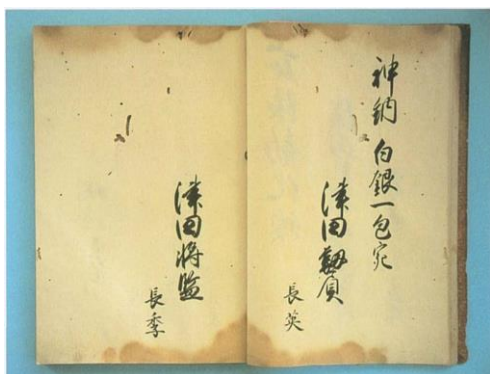 神納 白銀一包宛
津田靱負
長英
津田将監
長季